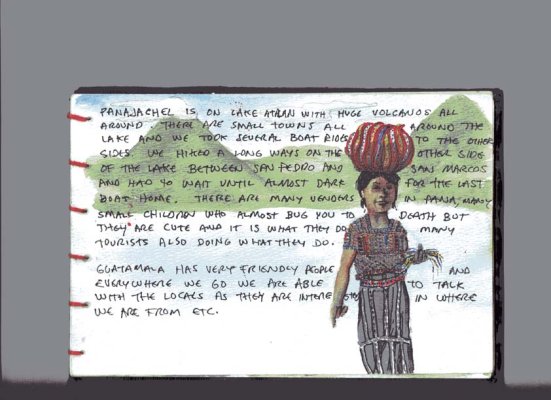 PANAJACHEL IS ON LAKE ATITLAN WITH HUGE VOLCANOS ALL
AROUND. THERE ARE SMALL TOWNS ALL AROUND THE
LAKE AND WE TOOK SEVERAL BOAT RIDES TO THE OTHER
SIDES. WE HIKED A LONG WAYS ON THE OTHER SIDE
OF THE LAKE BETWEEN SAN PEDRO AND SAN MARCOS
AND HAD TO WAIT UNTIL ALMOST DARK FOR THE LAST
BOAT HOME. THERE ARE MANY VENDERS IN PANA, MANY
SMALL CHILDREN WHO ALMOST BUG YOU TO DEATH BUT
THEY ARE CUTE AND IT IS WHAT THEY DO. MANY
TOURISTS ALSO DOING WHAT THEY DO.
GUATAMALA HAS VERY FRIENDLY PEOPLE AND
EVERYWHERE WE GO WE ARE ABLE TO TALK
WITH THE LOCALS AS THEY ARE INTERESTED IN WHERE
WE ARE FROM ETC.